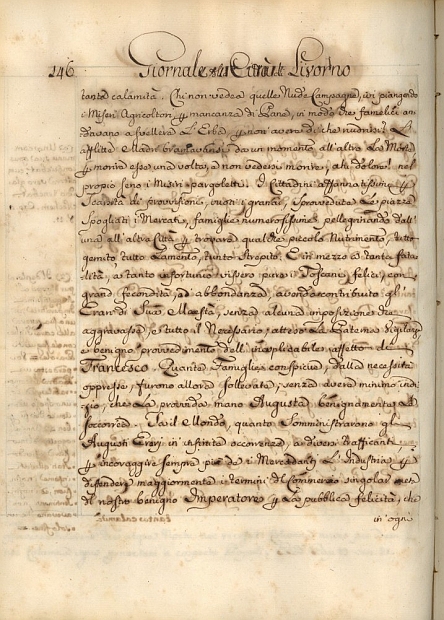 146 Giornale Livorno
tanta calamità. Chi non vedea quelle Nude Campagne, ivi piangendo
i Miseri Agricoltori per mancanza di Pane, in modo che famelici an
davano a svellere l'Erba, per non aver di che nudrirsi. L'
afflitte Madri bramavansi da un momento all'altro La Morte
per morire esse una volta, e non vedersi morire, ahi dolore! nel
proprio seno i Miseri pargoletti. I Cittadini affannatissimi per
Scarsità di provisioni, vuoti i granai, sprovedute Le piazze
Spogliati i Mercati, famiglie numerosissime pellegrinando dall'
una all'altra Città per trovare qualche piccolo Nutrimento, tutto
gemito, tutto Lamento, tutto Strepito. E in mezzo a tanta fata
lità, a tanto infortunio vissero pure i Toscani felici, con
gran fecondità, ed abbondanza, avendo contribuito gl'
Erari di Sua Maestà, senza alcuna imposizione che
aggravasse, e tutto il Necessario, atteso La Paterna Vigilanza
e benigno provvedimento dell'inesplicabile affetto di
Francesco. Quante Famiglie cospicue, dalla necessità
oppresse, furono allora sollevate, senza avere minimo indi
zio, che La provvida mano Augusta benignamente Le
soccorre. Sa il Mondo, quanto Somministrarono gl'
Augusti Erari in infinite occorrenze, a diversi trafficanti
per incoraggire sempre più de i Mercadanti L'Industria, per
distendere maggiormente i termini del Commercio singolar
del nostro benigno Imperatore per La pubblica felicità, che
in ogni